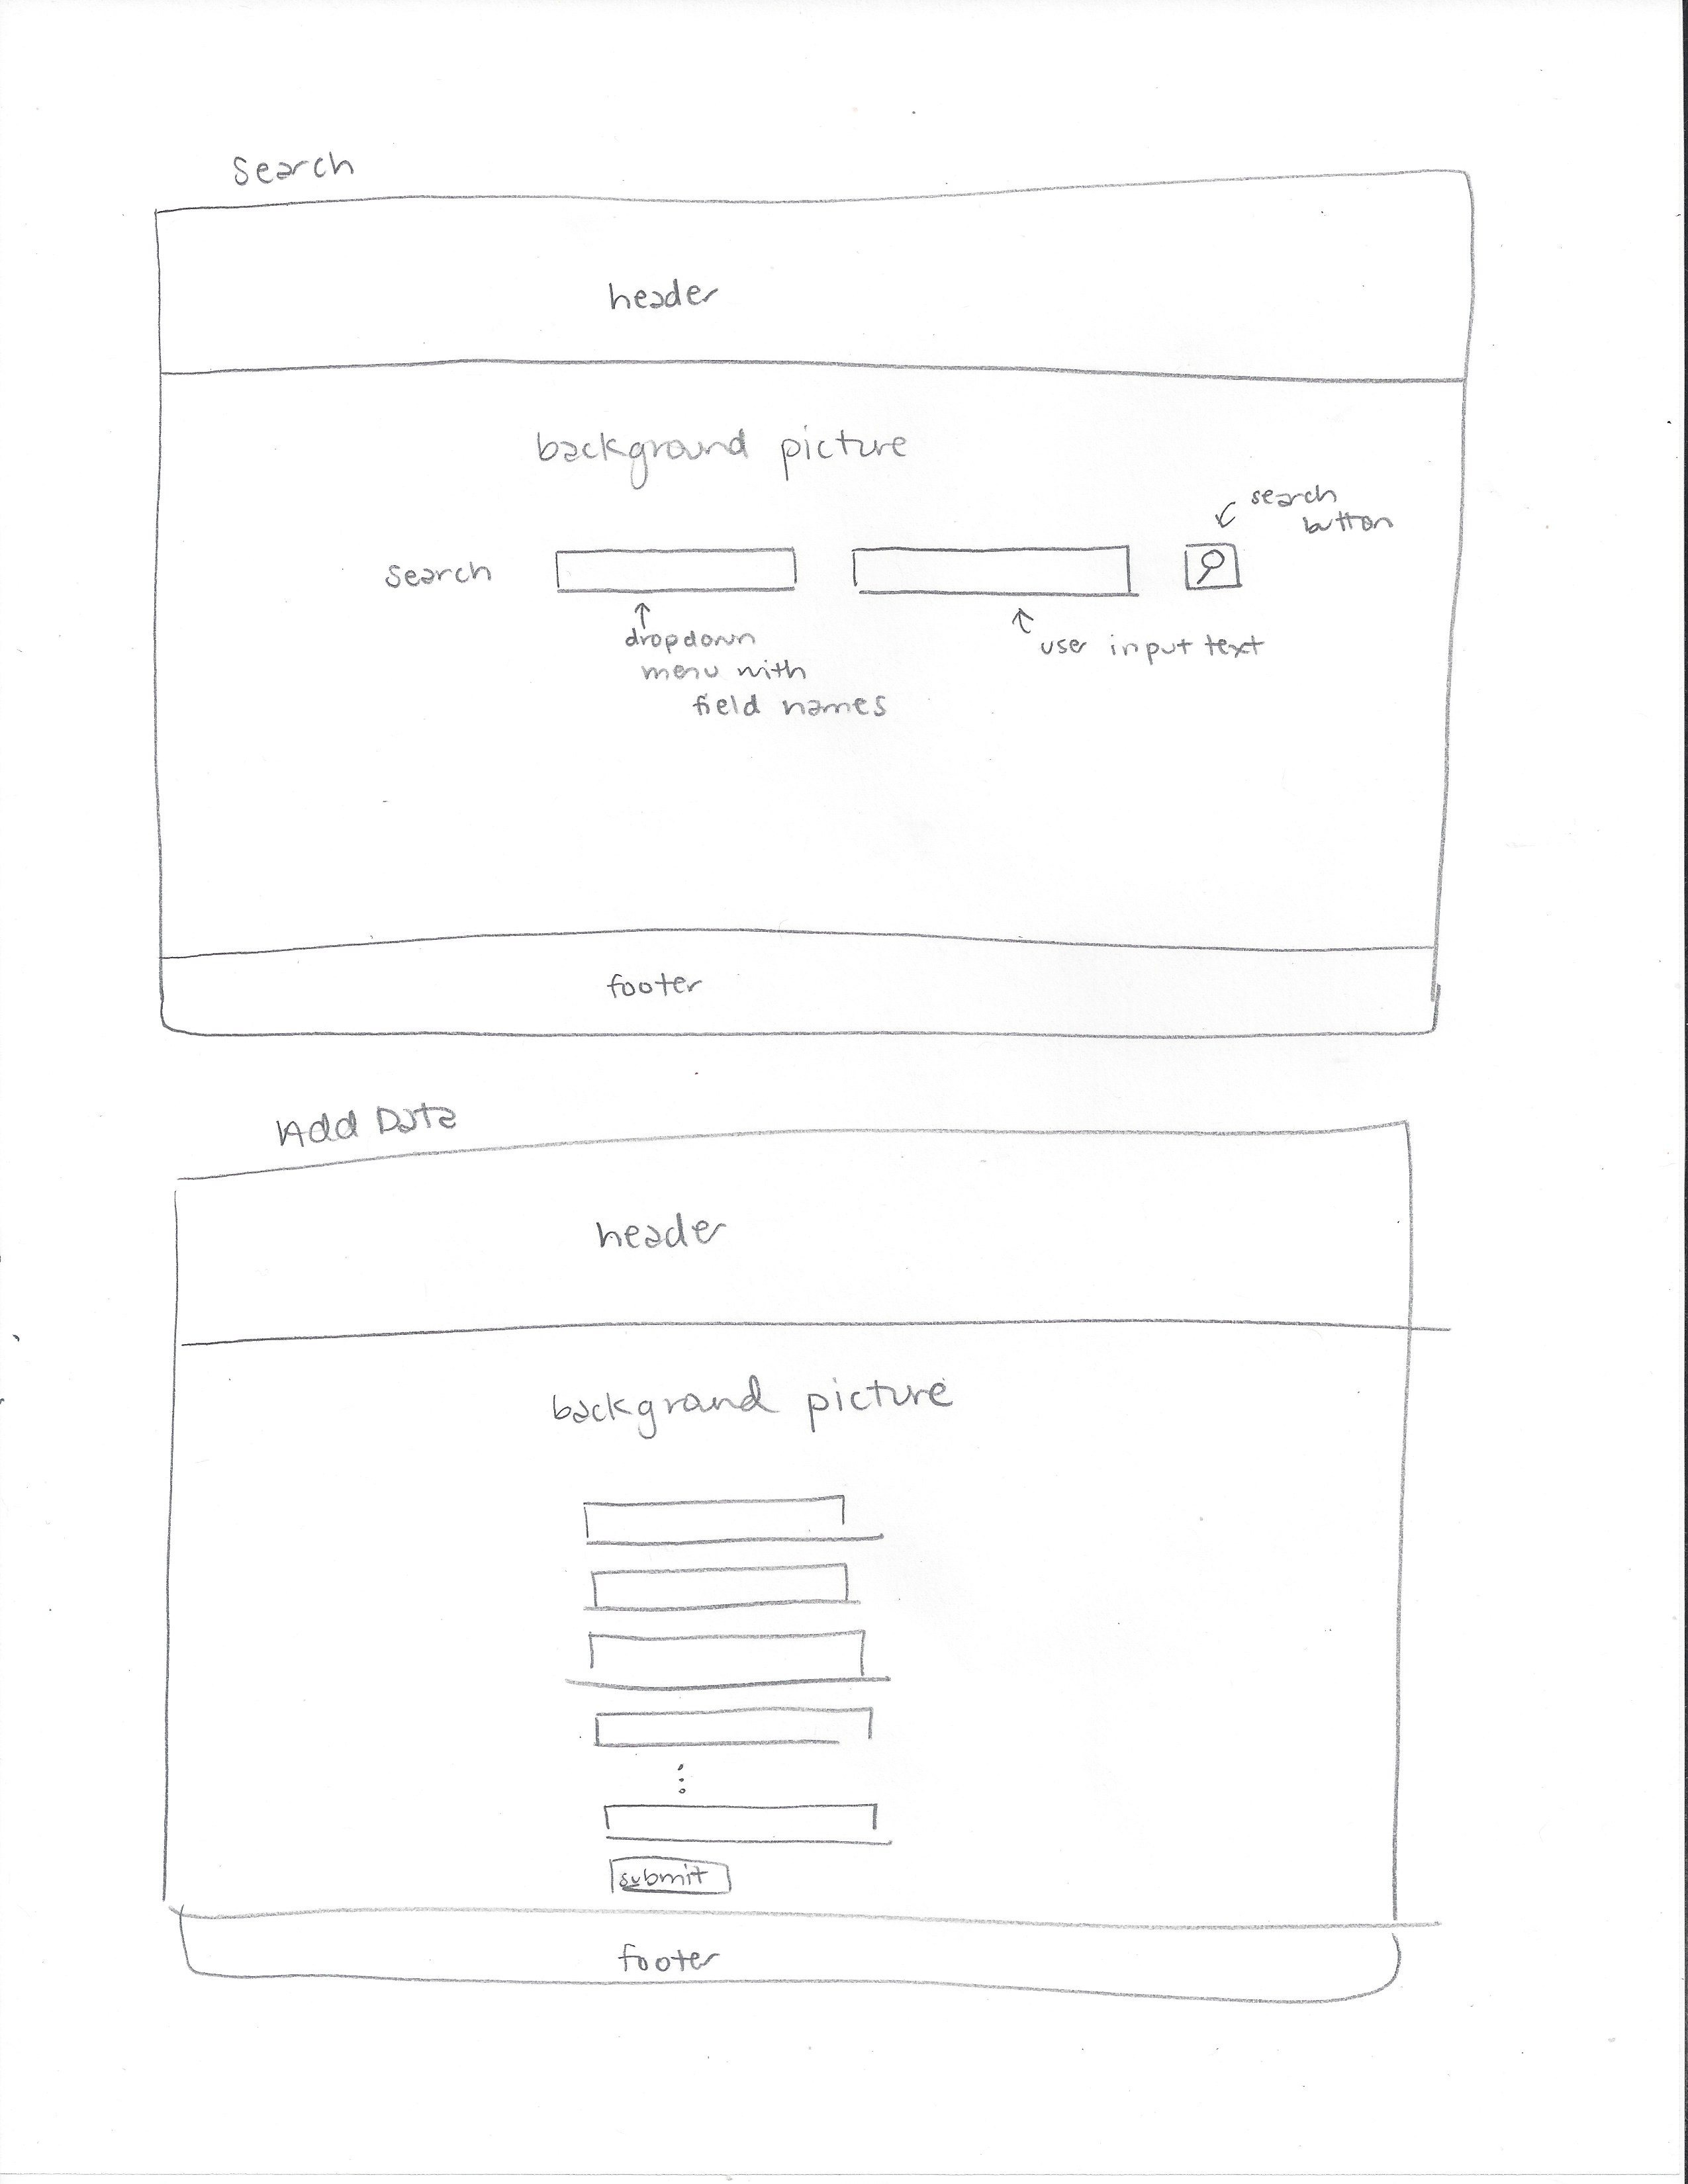 Search
header
background picture
search
button
Search
dropdown
menu with
field names
user input text
footer
Add Data
header
background picture
submit
footer